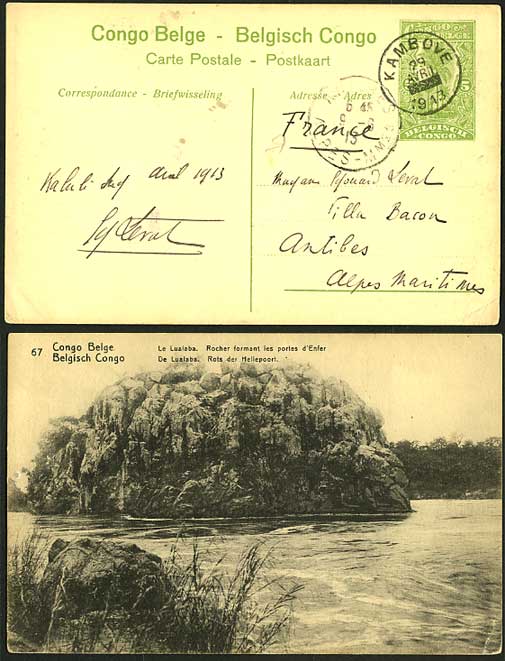 Congo Belge - Belgisch Congo
Carte Postale - Postkaart
Correspondance - Briefwisseling
Adresse - Adres
CONGO BELGE
5
BELGISCH CONGO
KAMBOVE
29
AVRIL
1913
France
1913
Villa Bacon
Antibes
Alpes Maritimes
67 Congo Belge
Belgisch Congo
Le Lualaba. Rocher formant les portes d'Enfer
De Lualaba. Rots der Hellepoort.